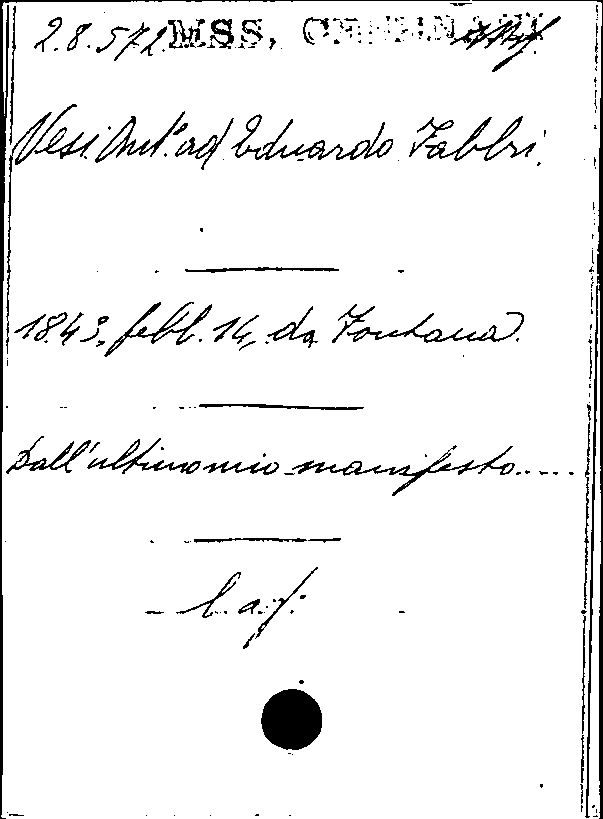 2.8.572 MSS,
Vesi Ant.º ad Eduardo Fabbri.
1843, febb. 14, da Fontana.
Dall'ultimo mio manifesto.....
l. a. f.